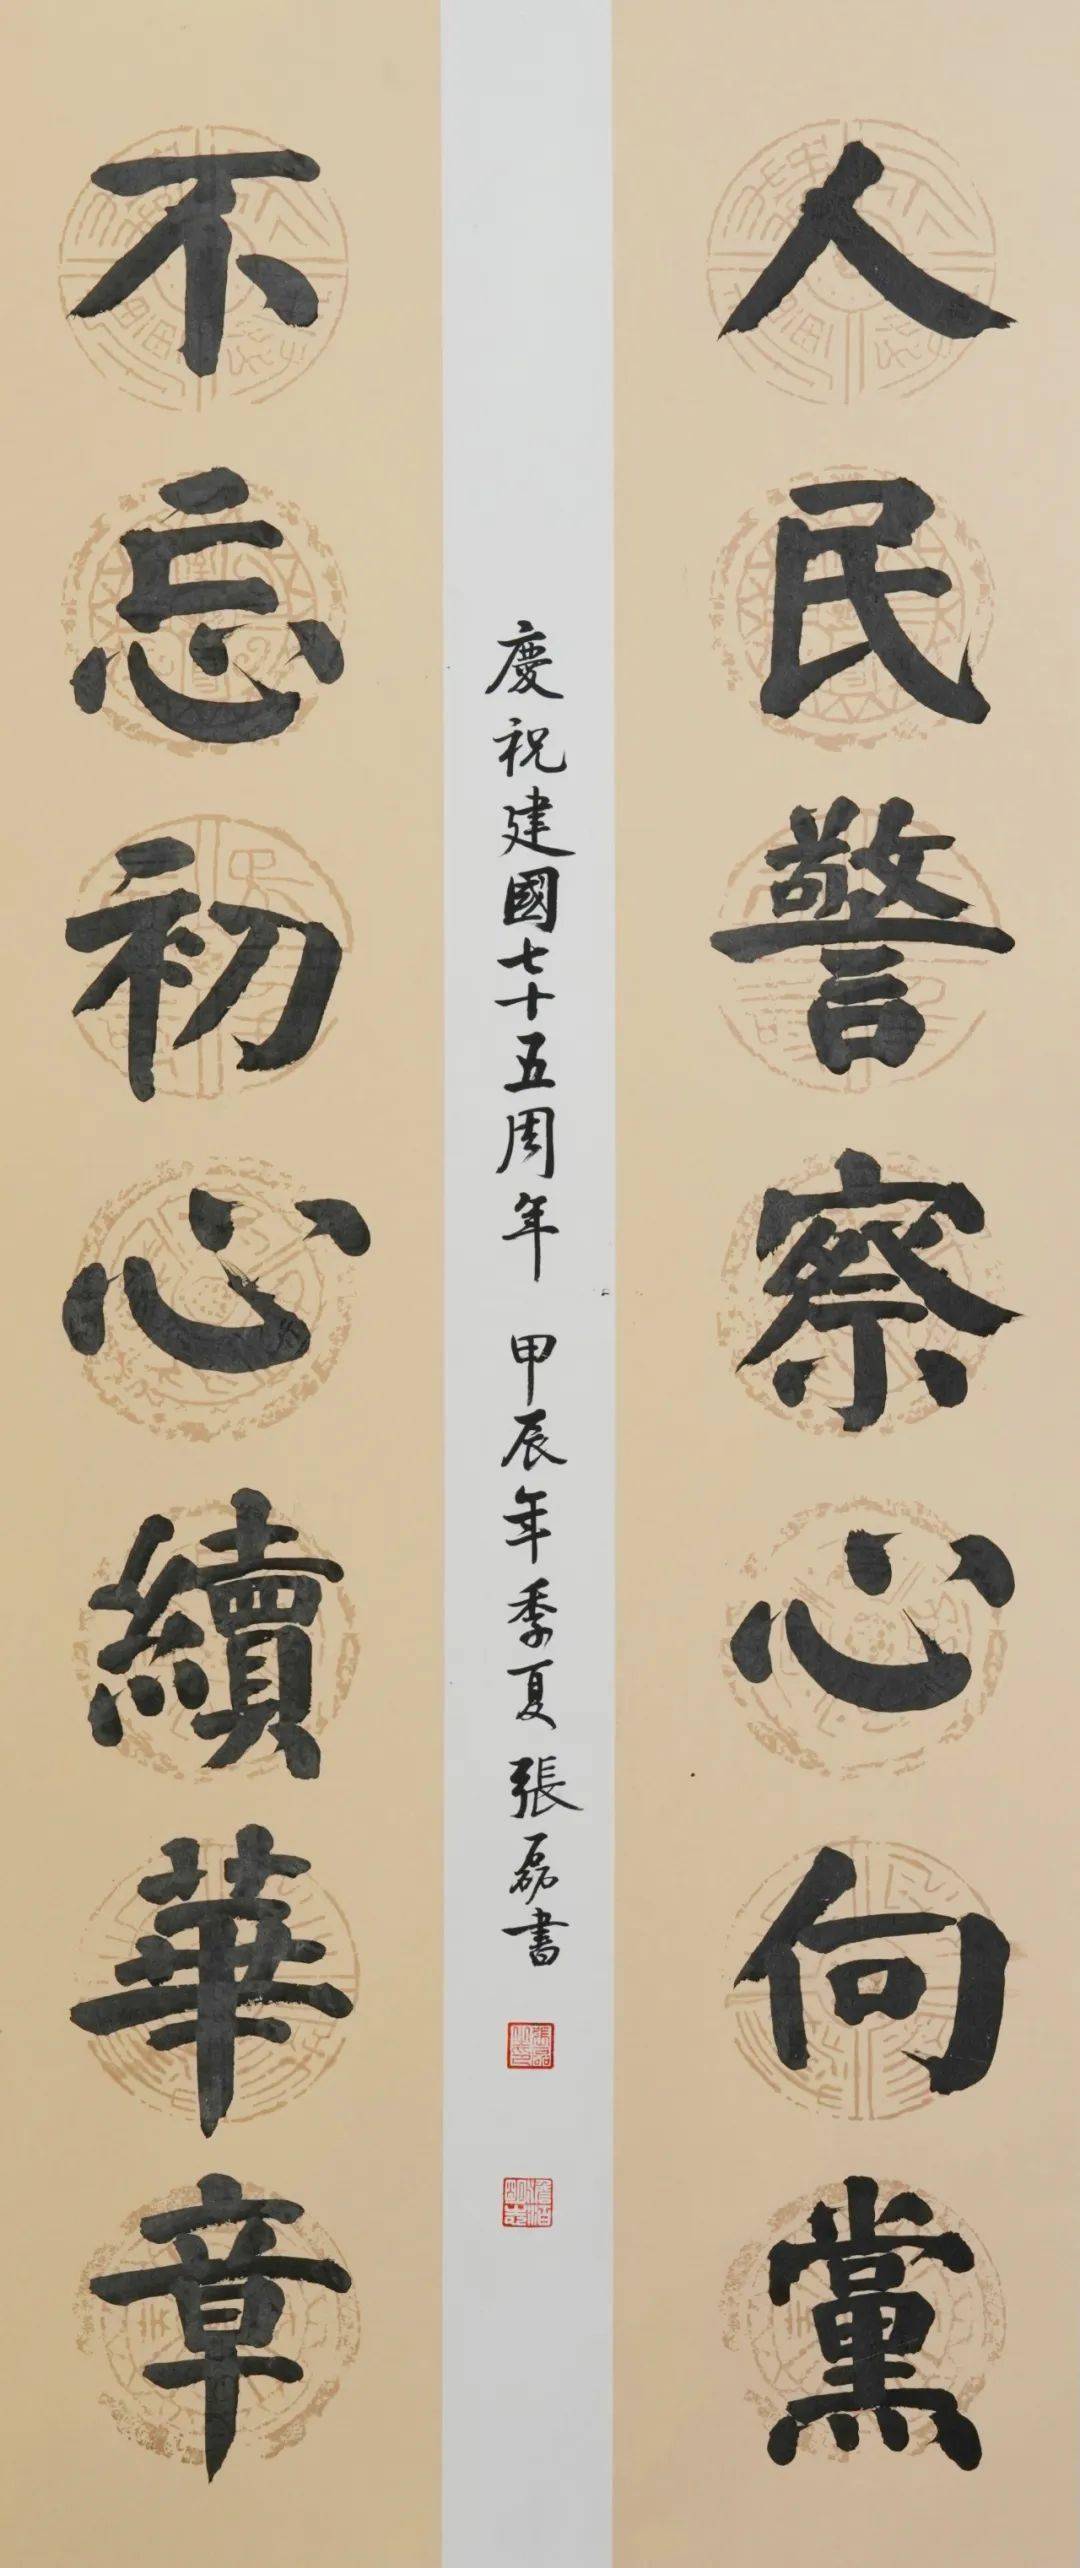 人民警察心向黨
不忘初心續華章
慶祝建國七十五周年 甲辰年季夏 張磊書